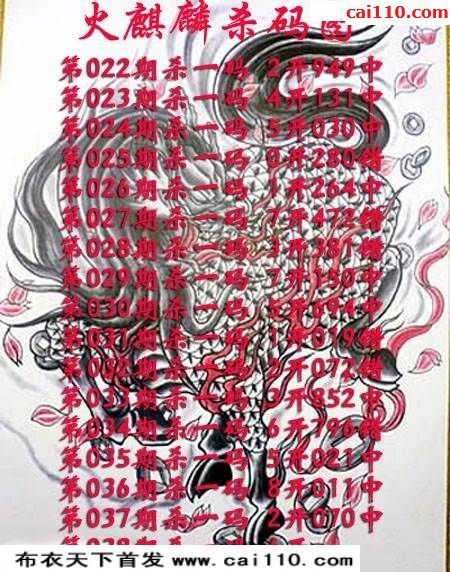 cai110.com
火麒麟杀码
第022期杀一码 2开949中
第023期杀一码 4开131中
第024期杀一码 5开030中
第025期杀一码 0开280错
第026期杀一码 1开264中
第027期杀一码 7开472错
第028期杀一码 3开381错
第029期杀一码 7开150中
第030期杀一码 5开694中
第031期杀一码 1开019错
第032期杀一码 2开072错
第033期杀一码 开852中
第034期杀一码 6开796错
第035期杀一码 5开021中
第036期杀一码 8开011中
第037期杀一码 2开070中
布衣天下首发 www.cai110.com